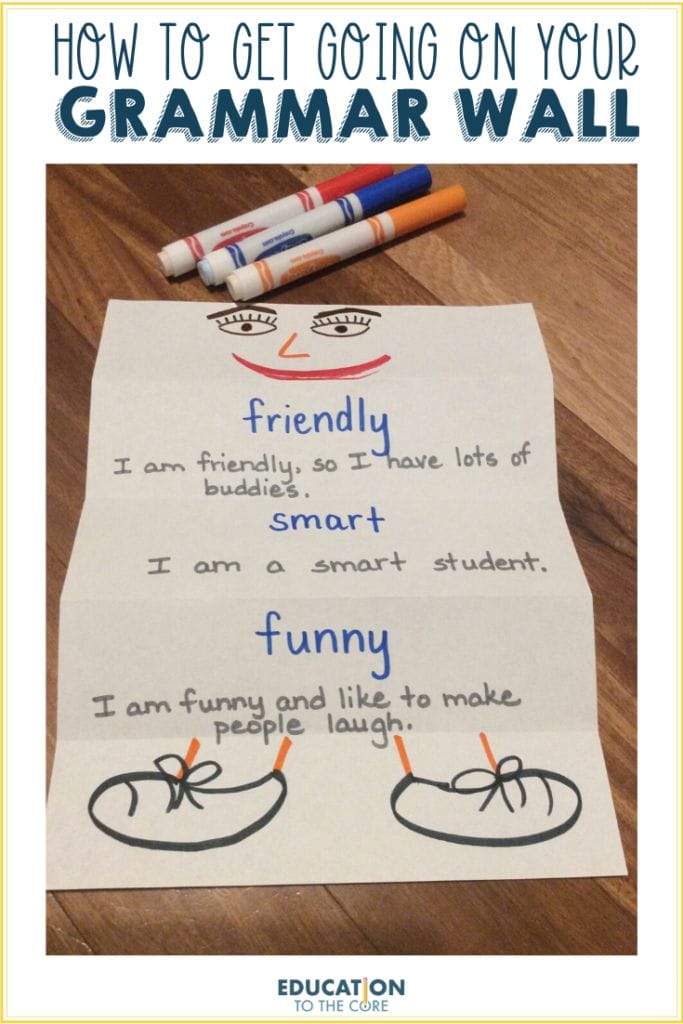 HOW TO GET GOING ON YOUR
GRAMMAR WALL
Crayola.com
Crayola.com
Crayola.com
friendly
I am friendly, so I have lots of
buddies.
smart
I am a smart student.
funny
I am funny and like to make
people laugh.
EDUCATION
TO THE CORE